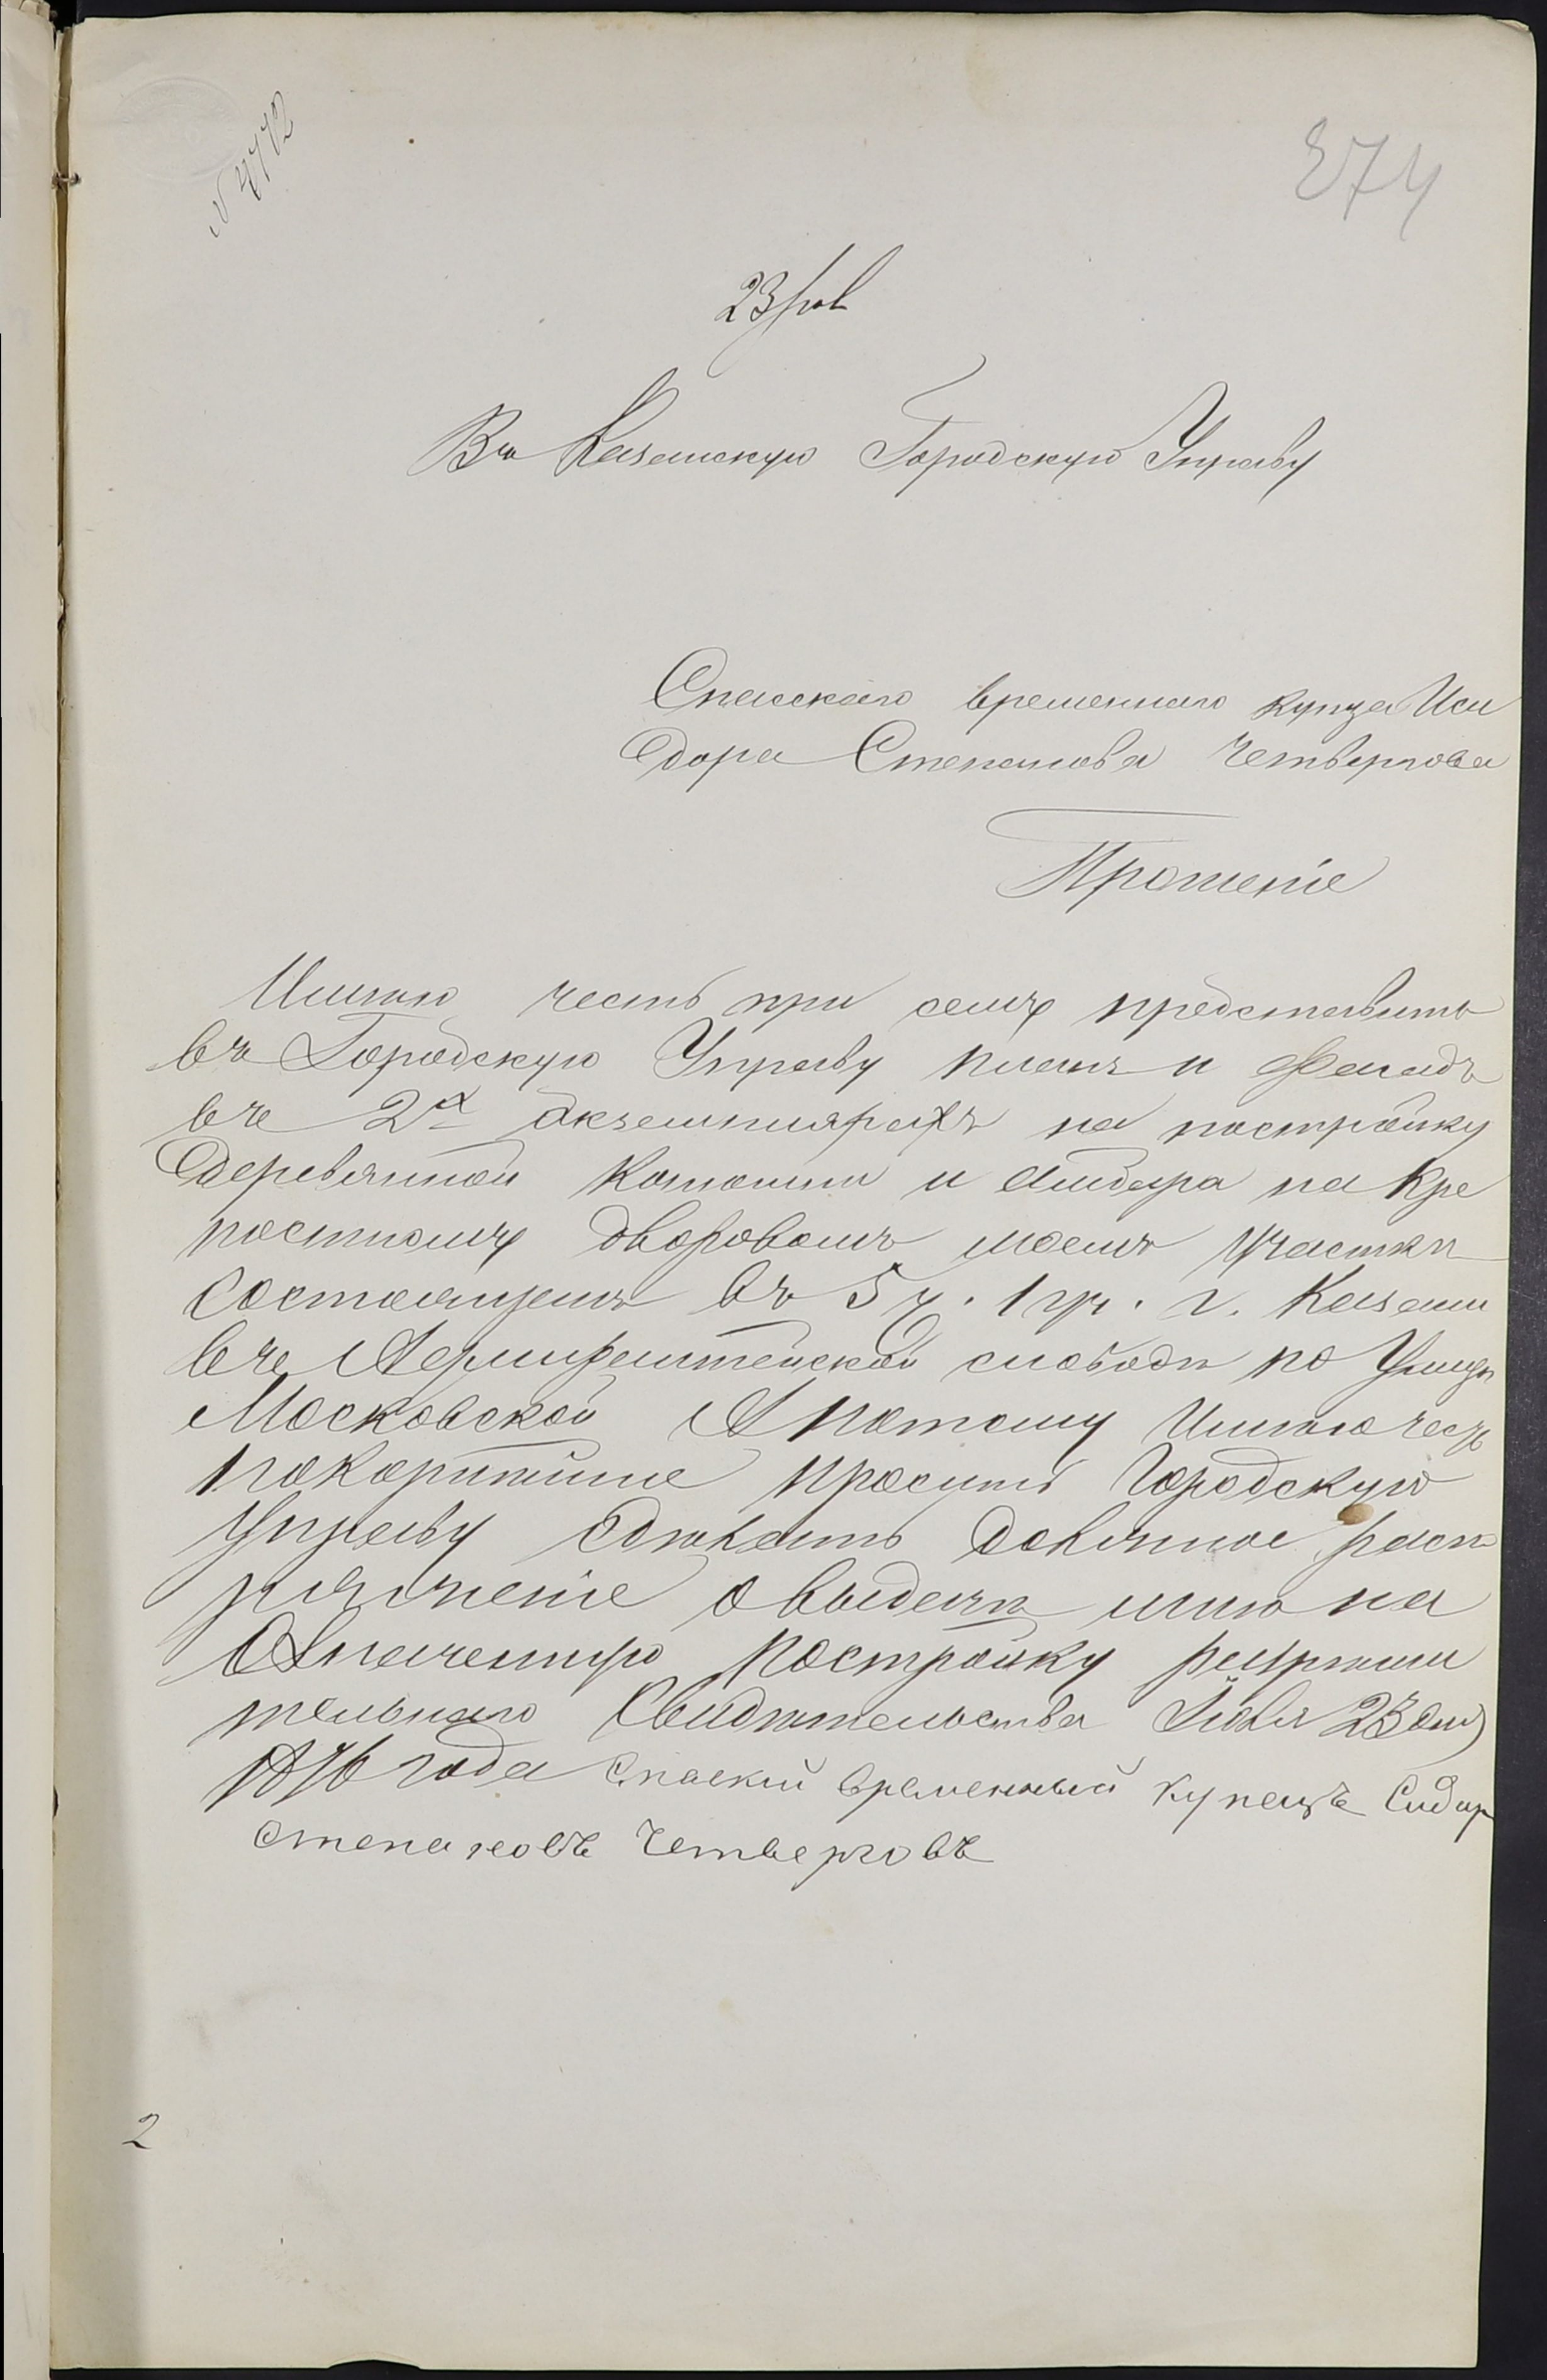 № 4772
274
23 Іюл
Въ Казанскую Городскую Управу
Спасскаго временнаго купца Иси
дора Степанова Четвергова
Прошеніе
Имѣю честь при семъ представить
въ Городскую Управу планъ и Фасадъ
въ 2х экземплярахъ на постройку
деревянной конюшни и амбара на Кре
постномъ дворовомъ моемъ участкѣ
состоящемъ въ 5 ч. 1 кр. г. Казани
въ Адмиралтейской слободѣ по Улицѣ
Московской А потому Имѣю честь
покорнѣйше просить Городскую
Управу сдѣлать должное расп
ряженіе о выдачѣ мнѣ на
Означенную постройку разрѣши
тельнаго Свидѣтельства Іюля 23 дня
1876 года Спаский временный купецъ Сидор
степановъ Четверговъ
2